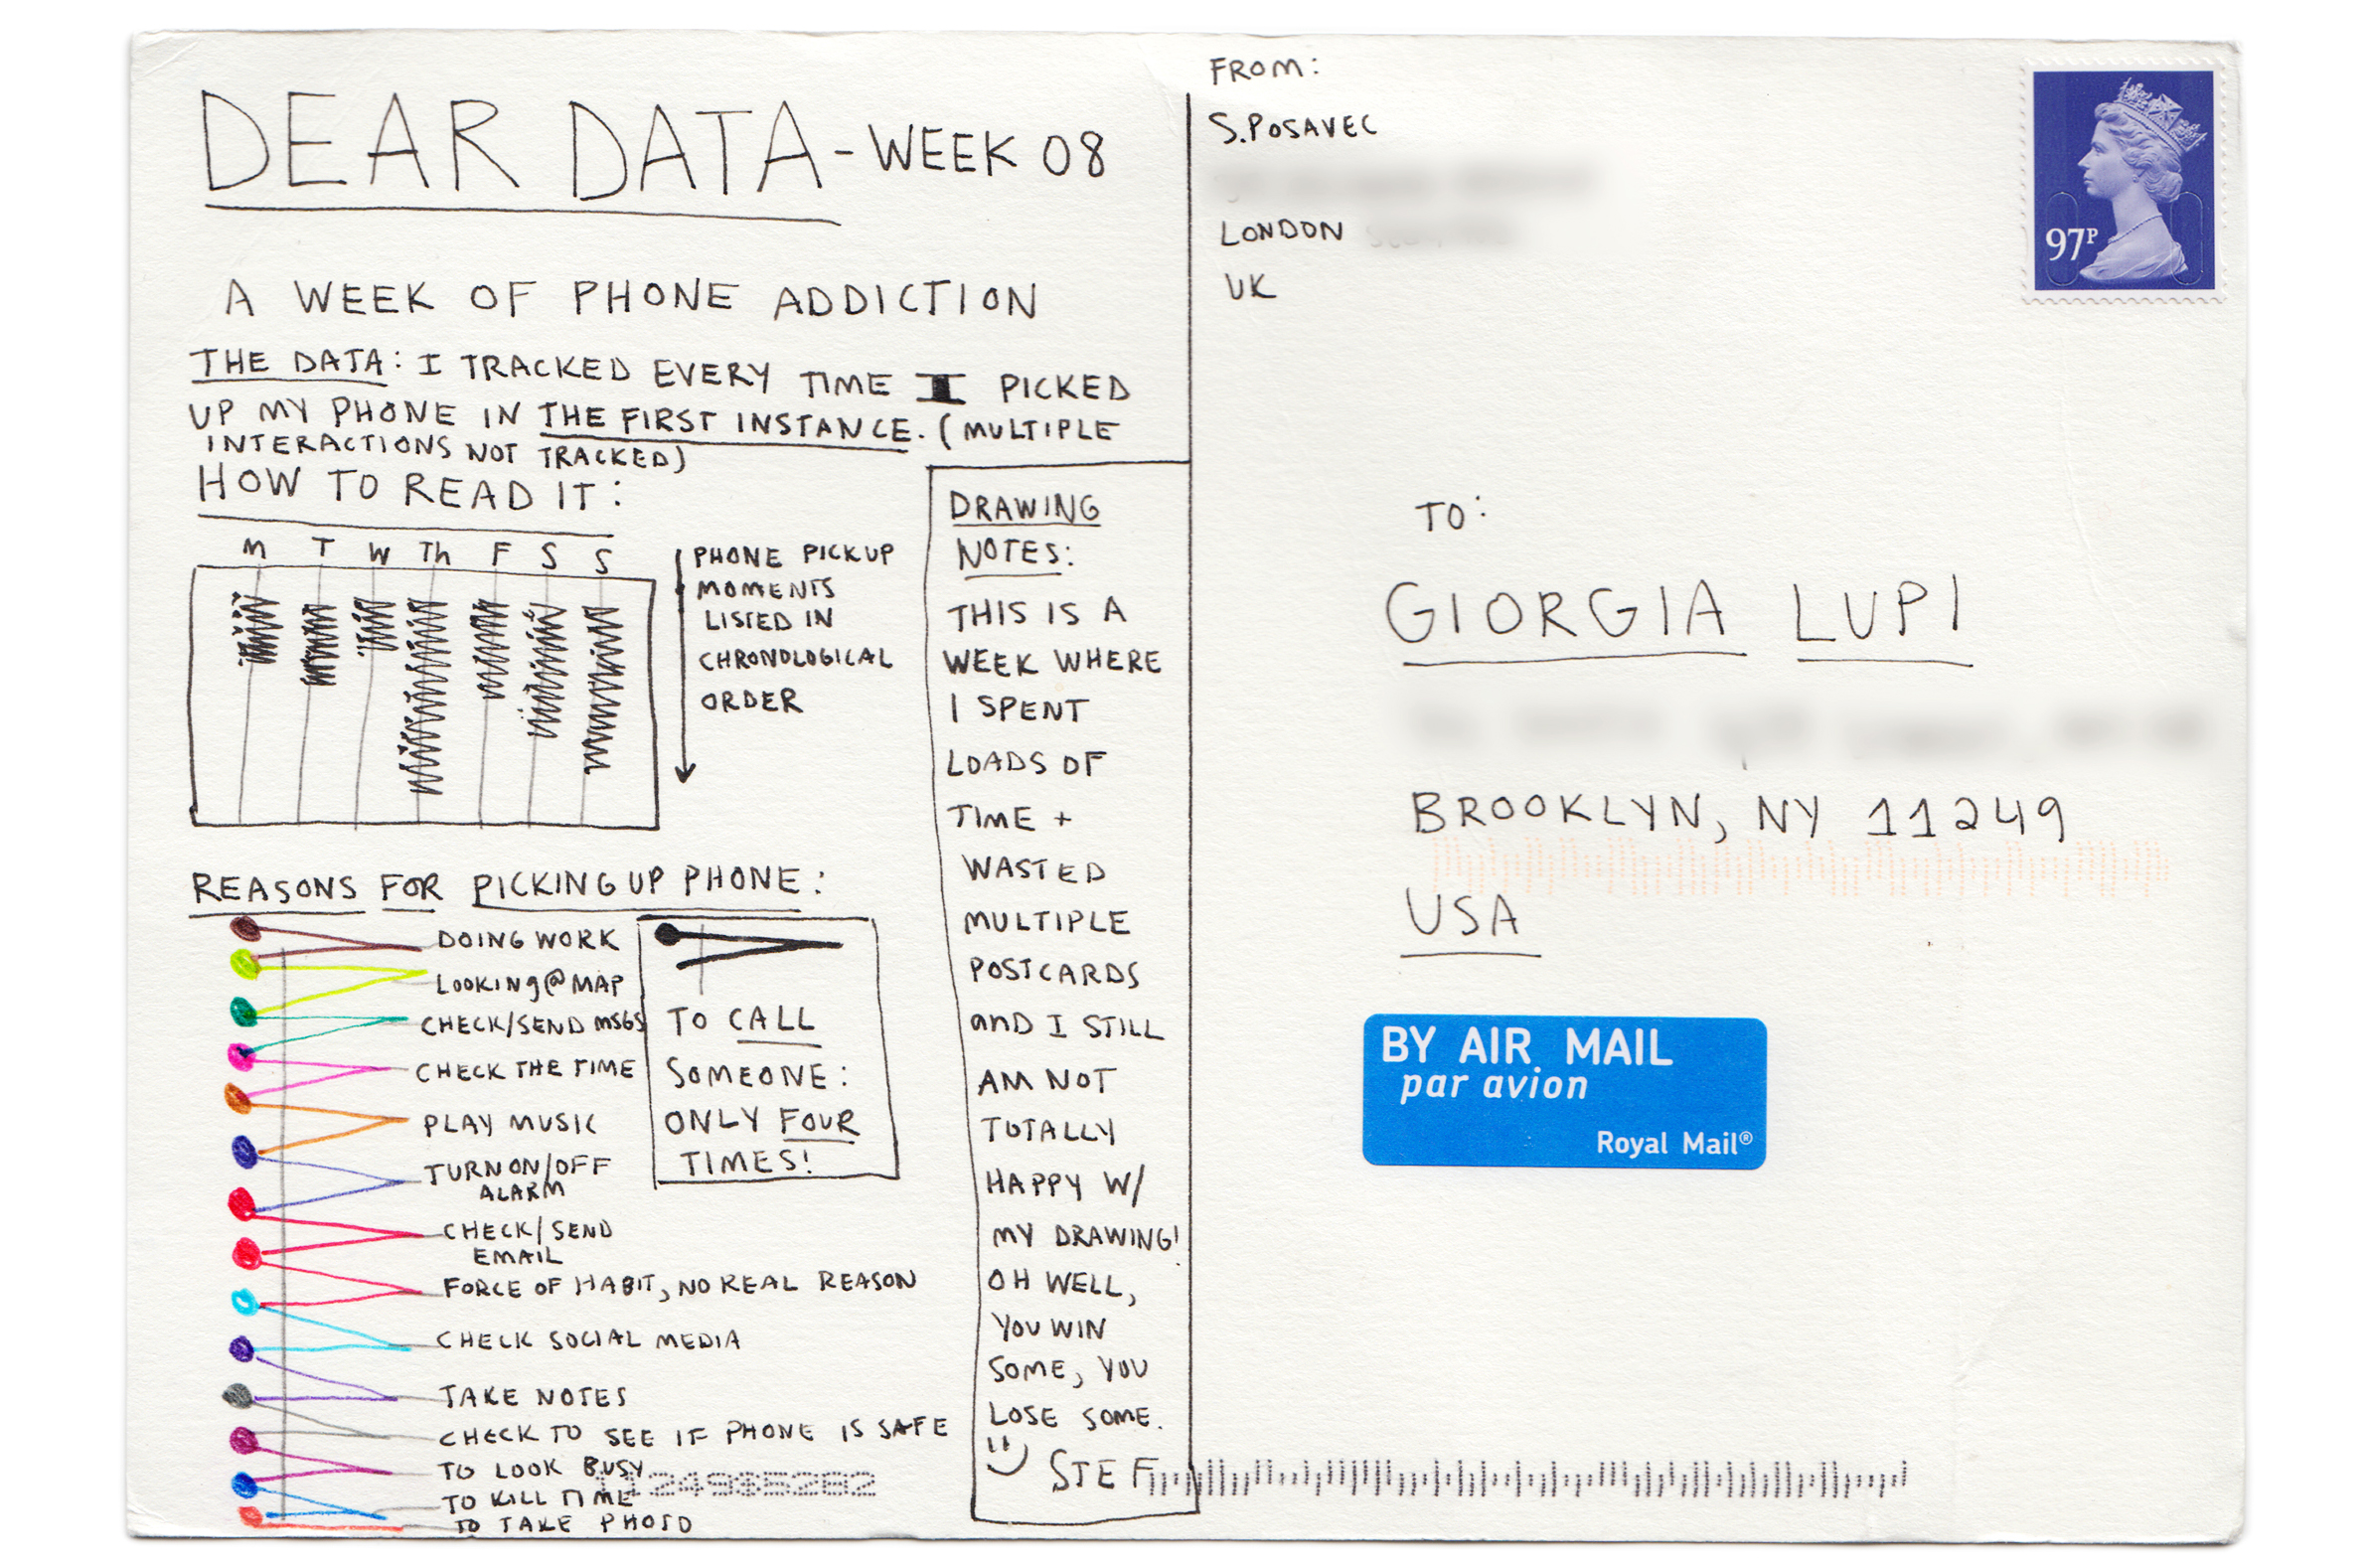 DEAR DATA - WEEK 08
A WEEK OF PHONE ADDICTION
THE DATA: I TRACKED EVERY TIME I PICKED
UP MY PHONE IN THE FIRST INSTANCE. (MULTIPLE
INTERACTIONS NOT TRACKED)
HOW TO READ IT:
M T W Th F S S
PHONE PICKUP
MOMENTS
LISTED IN
CHRONOLOGICAL
ORDER
REASONS FOR PICKING UP PHONE:
DOING WORK
LOOKING @ MAP
CHECK/SEND MSGS
CHECK THE TIME
PLAY MUSIC
TURN ON/OFF
ALARM
CHECK/SEND
EMAIL
FORCE OF HABIT, NO REAL REASON
CHECK SOCIAL MEDIA
TAKE NOTES
CHECK TO SEE IF PHONE IS SAFE
TO LOOK BUSY
TO KILL TIME
TO TAKE PHOTO
TO CALL
SOMEONE:
ONLY FOUR
TIMES!
DRAWING
NOTES:
THIS IS A
WEEK WHERE
I SPENT
LOADS OF
TIME +
WASTED
MULTIPLE
POSTCARDS
anD I STILL
AM NOT
TOTALLY
HAPPY W/
MY DRAWING!
OH WELL,
YOU WIN
SOME, YOU
LOSE SOME.
STEF
FROM:
S.POSAVEC
LONDON
UK
97P
TO:
GIORGIA LUPI
BROOKLYN, NY 11249
USA
BY AIR MAIL
par avion
Royal Mail®